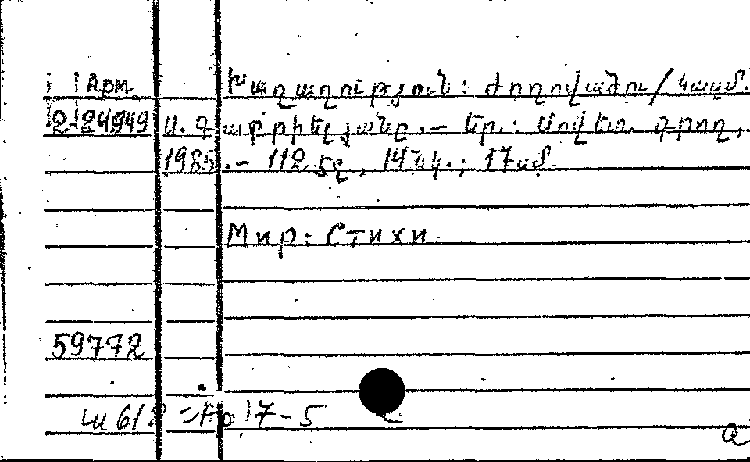 Арм. Խաղաղություն: Ժողովածու/ Կազմ.
2-24949 Ս. Գաբրիելյանը.– Եր.: Սովետ. գրող,
1985.– 112 էջ, 14 նկ.; 17 սմ.
Мир: Стихи.
59772
7-5